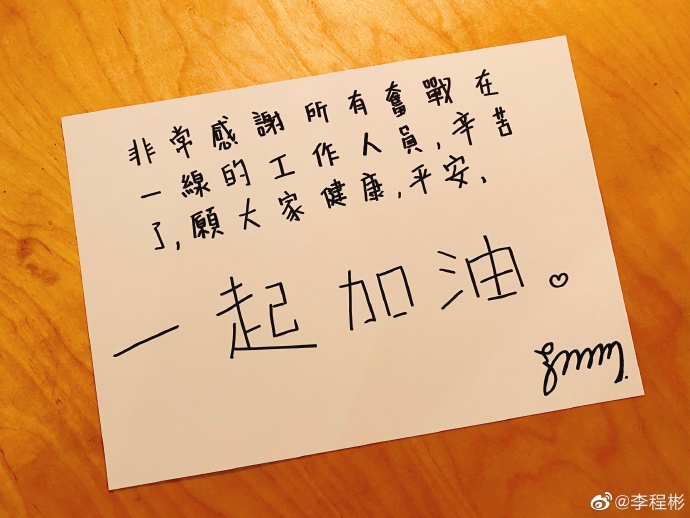 非常感謝所有奮戰在
一線的工作人員,辛苦
了,願大家健康,平安、
一起加油。♡
@李程彬